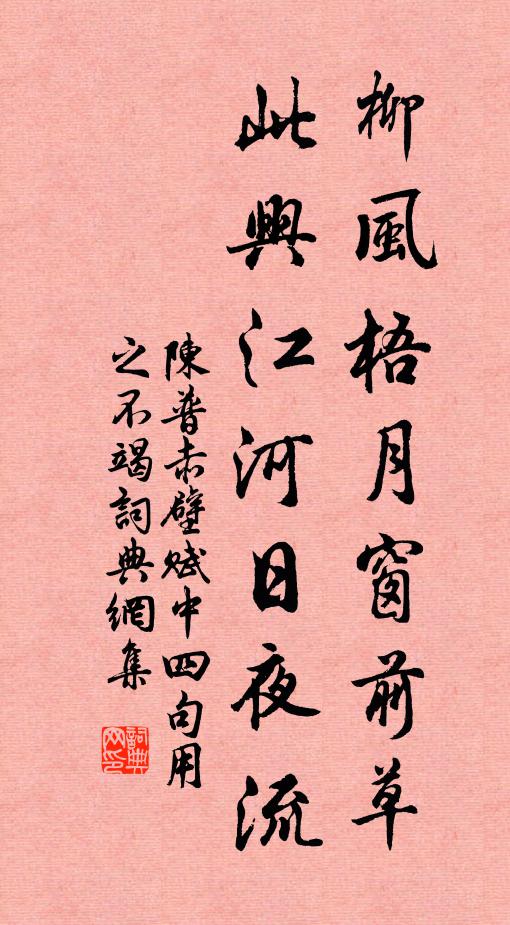 柳風梧月窗前草
此興江河日夜流
陳普赤壁賦中四句用
之不竭詞典網集
詞典
网印